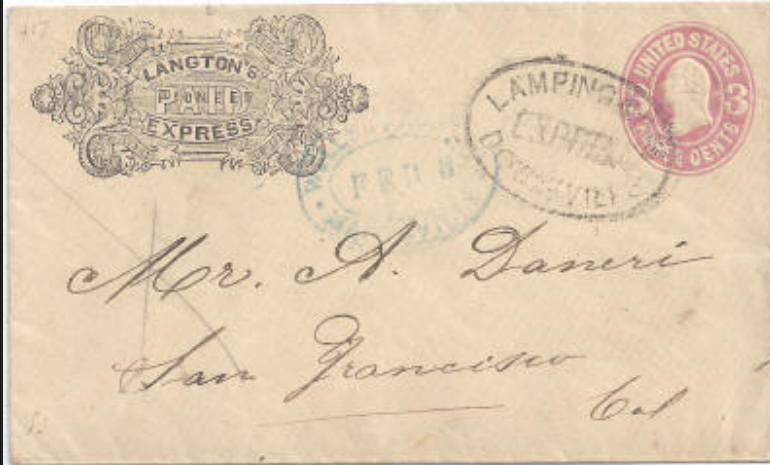 LANGTON'S
PIONEER
PAID
EXPRESS
LAMPING'S
EXPRESS
DOWNIEVILLE
UNITED STATES
3 3
THREE CENTS
FEB 8
Mr. A. Daneri
San Francisco
Cal